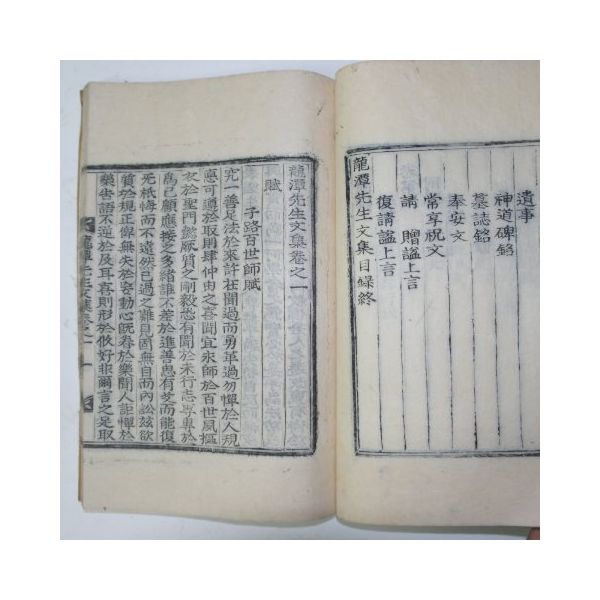 遺事
神道碑銘
墓誌銘
奉安文
常享祝文
請 贈諡上言
復請諡上言
龍潭先生文集目錄終
龍潭先生文集卷之一
賦
子路百世師賦
究一善足法於來許在聞過而勇革過勿憚於人規
應可證於取則肆仲由之喜聞宜永師於百世夙摳
衣於聖門懿厥質之剛毅恐有聞於未行志學專於
爲己顧應接之多緒誰不差於進善患有失而能復
死祇悔而不遠然己過之難見固無自而內訟玆欲
質於規正俾無失於妄動心旣存於樂聞人詎憚於
藥告語不逆於及耳喜則形於攸好非爾言之足取